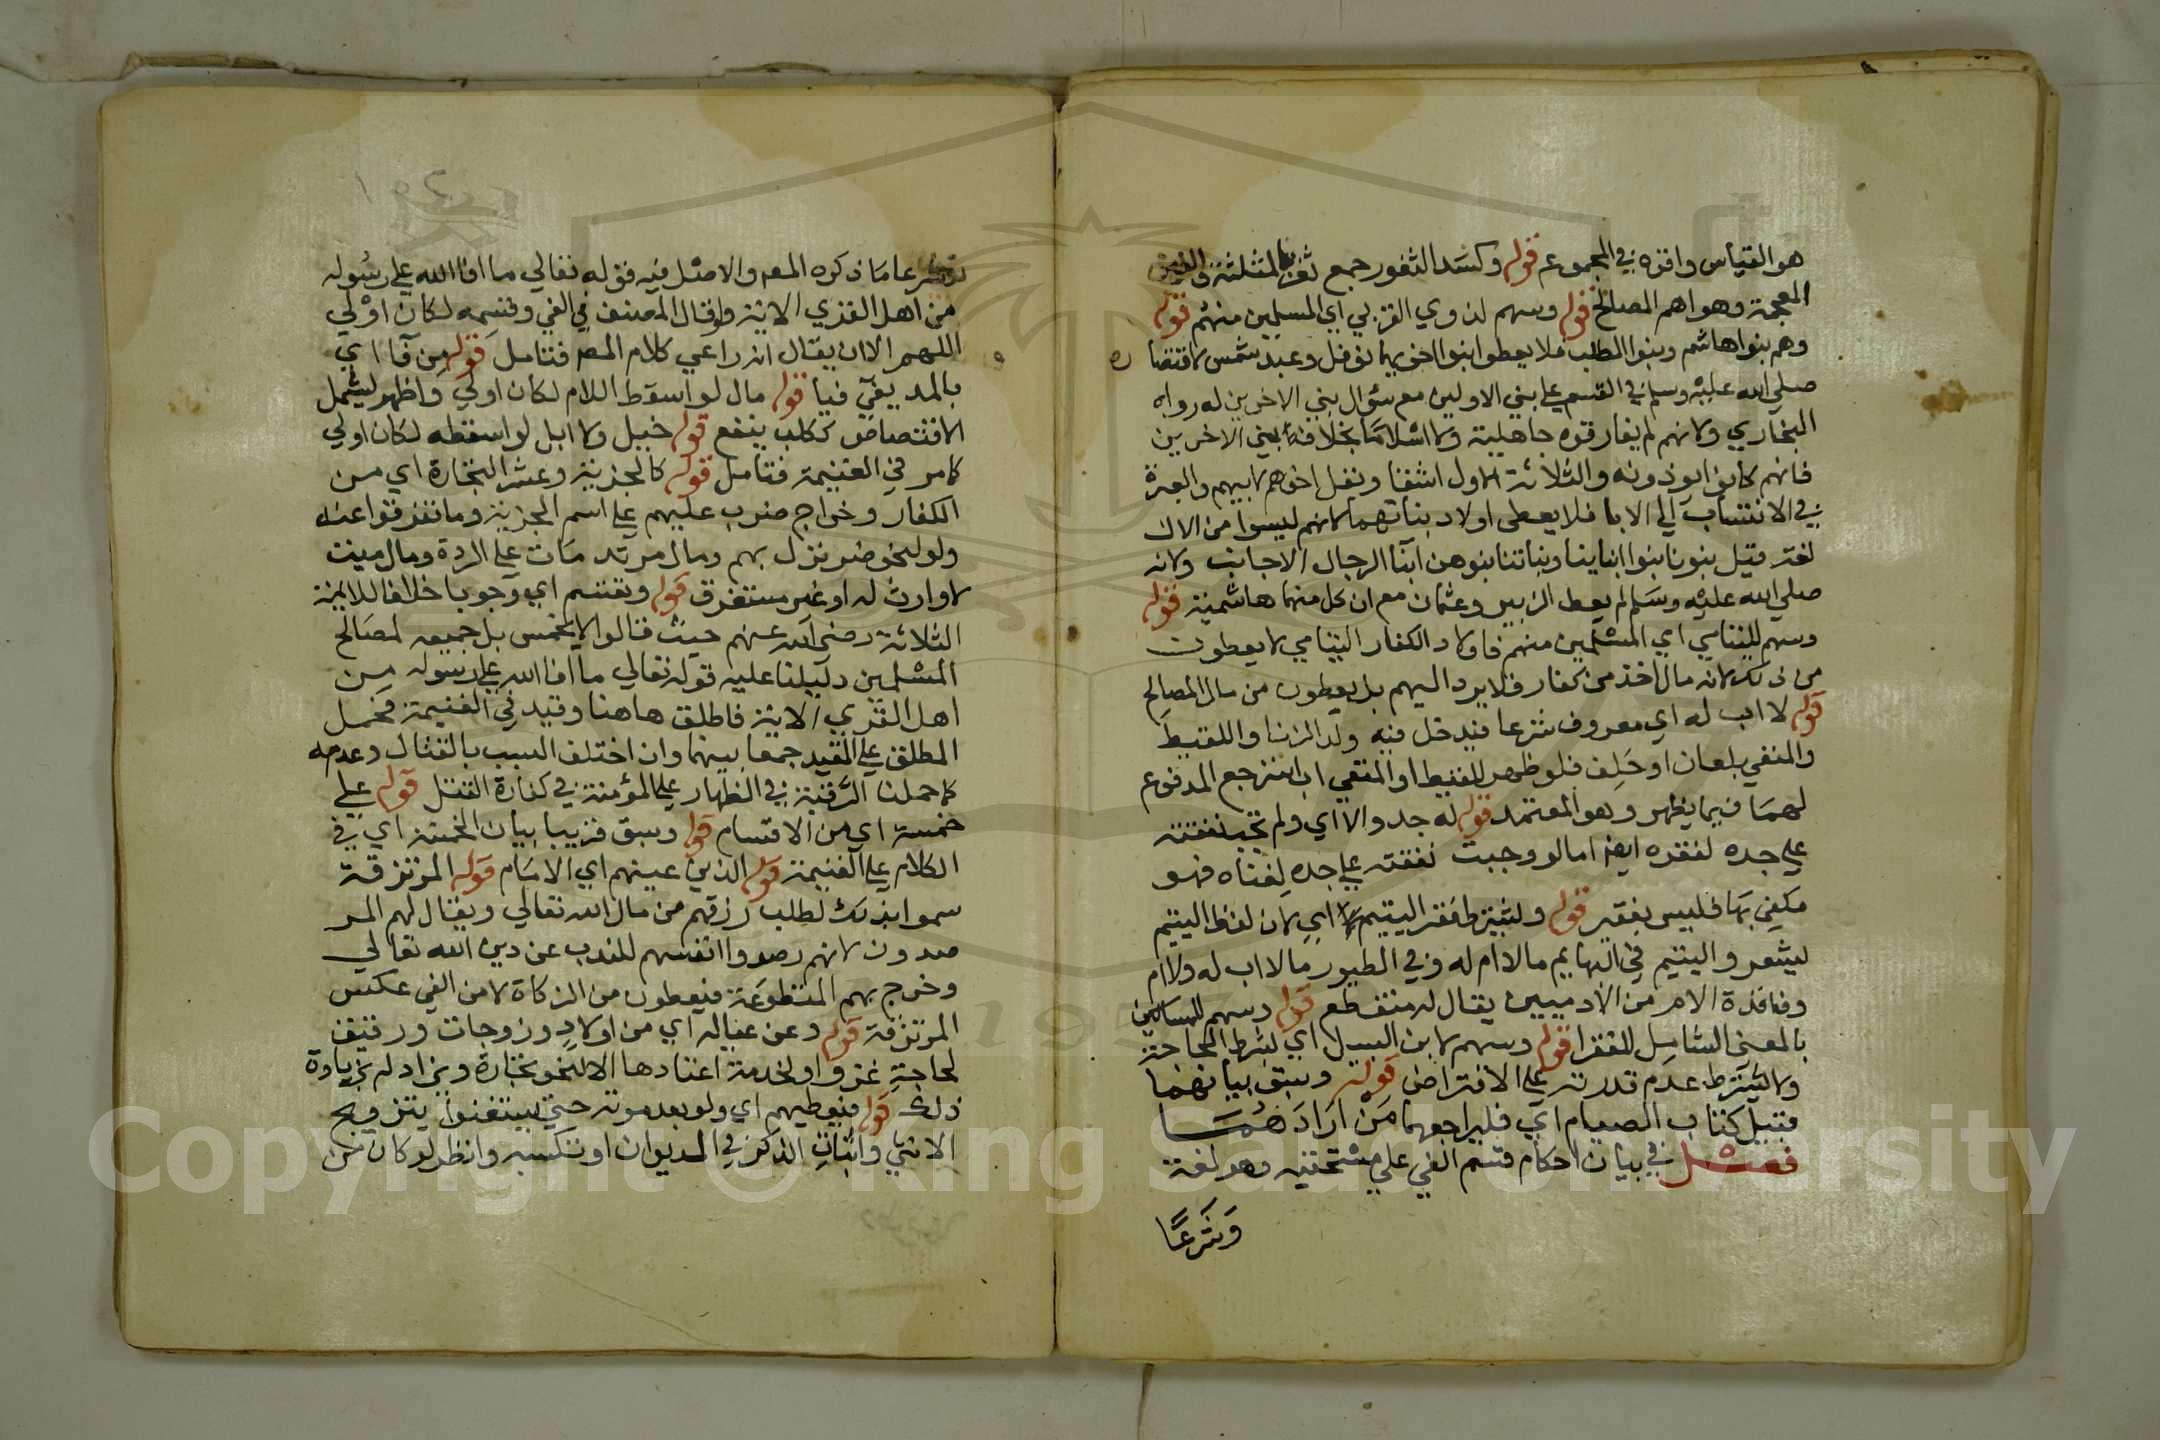 هو القياس واقره في المجموع قوله وكسد الثغور جمع ثغر بالمثلثة والغين
المعجمة وهو اهم المصالح قوله وسهم لذوي القربي اي المسلمين منهم قوله
وهم بنوا هاشم وبنوا المطلب فلا يعطوا بنوا اخويهما نوفل وعبد شمس لاقتصا
صلي الله عليه وسلم في القسم علي بني الاولين مع سؤال بني الاخرين له رواه
البخاري ولانهم لم يفارقوه جاهلية ولا اسلاما بخلاف بني الاخرين
فانهم كانوا يوذونه والثلاثة الاول اشقا ونوفل اخوهم لابيهم والعبرة
في الانتساب الي الابا فلا يعطي اولاد بناتهما لانهم ليسوا من الال
لغة قيل بنونا بنوا ابناينا وبناتنا بنوهن ابنا الرجال الاجانب ولانه
صلي الله عليه وسلم لم يعط الزبير وعثمان مع ان كل منهما هاشمية قوله
وسهم لليتامي اي المسلمين منهم فاولاد الكفار اليتامي لا يعطون
من ذلك لانه مال اخذ من كفار فلا يرد اليهم بل يعطون من مال المصالح
قوله لا اب له اي معروف شرعا فيدخل فيه ولد الزنا واللقيط
والمنفي بلعان او حلف فلو ظهر للقيط او المنفي اب استرجع المدفوع
لهما فيما يظهر وهو المعتمد قوله له جد والا اي ولم تجب نفقته
علي جده لفقره ايضا اما لو وجبت نفقته علي جده لغناه فهو
مكفي بها فليس بفقير قوله ويشترط فقر اليتيم اي لان لفظ اليتيم
يشعر واليتيم في البهايم مالا ام له وفي الطيور مالا اب له ولا ام
وفاقدة الام من الادميين يقال له منقطع قوله وسهم للمساكين
بالمعني الشامل للفقرا قوله وسهم لابن السبيل اي بشرط الحاجة
ولا يشترط عدم قدرته علي الاقتراض قوله وسبق بيانهما
قبيل كتاب الصيام اي فليراجعهما من ارادهما
فصل في بيان احكام قسم الفي علي مستحقيه وهو لغة
وشرعا
شرعا ما ذكره المص والاصل فيه قوله تعالي ما افا الله علي رسوله
من اهل القري الاية ولو قال المصنف في الفي وقسمه لكان اولي
اللهم الا ان يقال انه راعي كلام المص فتامل قوله من فا اي
بالمد يفي فيا قوله مال لو اسقط اللام لكان اولي واظهر ليشمل
الاختصاص ككلب ينفع قوله خيل ولا ابل لو اسقطه لكان اولي
كما مر في الغنيمة فتامل قوله كالجزية وعشر التجارة اي من
الكفار وخراج ضرب عليهم علي اسم الجزية وما تفرقوا عنه
ولو لنحو ضر نزل بهم ومال مرتد مات علي الردة ومال ميت
لا وارث له او غير مستغرق قوله ويقسم اي وجوبا خلافا للايمة
الثلاثة رضي الله عنهم حيث قالوا لا يخمس بل جميعه لمصالح
المسلمين دليلنا عليه قوله تعالي ما افا الله علي رسوله من
اهل القري الاية فاطلق هاهنا وقيد في الغنيمة فحمل
المطلق علي المقيد جمعا بينهما وان اختلف السبب بالقتال وعدمه
كما حملنا الرقبة في الظهار علي المؤمنة في كفارة القتل قوله علي
خمسة اي من الاقسام قوله وسبق قريبا بيان الخمسة اي في
الكلام علي الغنيمة قوله الذين عينهم اي الامام قوله المرتزقة
سموا بذلك لطلب رزقهم من مال الله تعالي ويقال لهم المر
صدون لانهم رصدوا انفسهم للذب عن دين الله تعالي
وخرج بهم المتطوعة فيعطون من الزكاة لا من الفي عكس
المرتزقة قوله وعن عياله اي من اولاد وزوجات ورقيق
لحاجة غزو او لخدمة اعتادها الا لنحو تجارة ويزاد له بزيادة
ذلك قوله فيعطيهم اي ولو بعد موته حتي يستغنوا بتزويج
الانثي واثبات الذكر في الديوان او تكسبه وانظر لو كان من